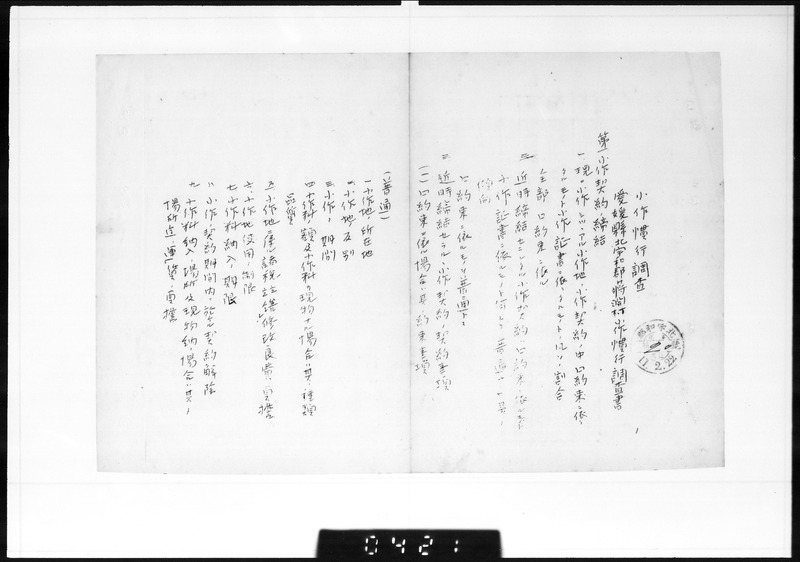 小作慣行調査
愛媛縣北宇和郡蒋淵村小作慣行調査書
第一 小作契約締結
一、現ニ小作シツヽアル小作地ノ小作契約ノ中口約束ニ依ル
モノト小作証書ニ依ルモノトノ割合
全部口約束ニ依ル
二、近時締結セラルヽ小作契約ハ口約束ニ依ルモノト
小作証書ニ依ルモノト何レヲ普通トスル
口約束ニ依ルモノヲ普通トス
三、近時締結セラルヽ小作契約ノ契約事項
(一)口約束ニ依ル場合ノ其ノ約束事項
(普通)
一、小作地ノ所在地
二、小作地反別
三、小作ノ期間
四、小作料ノ額及小作料ガ現物ナル場合ハ其ノ種類
品質
五、小作地ニ属スル諸税並修繕改良費ノ負擔
六、小作地使用ノ制限
七、小作料納入ノ期限
八、小作契約期間内ニ於ケル契約ノ解除
九、小作料納入ノ場所及現物納ノ場合ハ其ノ
場所迄ノ運賃ノ負擔
11.2.22
0421